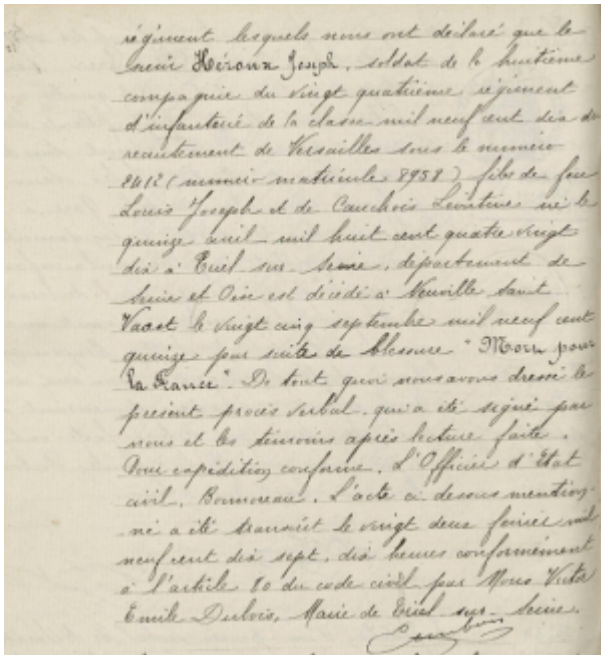 régiment lesquels nous ont déclaré que le
sieur Héroux Joseph, soldat de la huitième
compagnie du vingt quatrième régiment
d'infanterie de la classe mil neuf cent dix du
recrutement de Versailles sous le numéro
2412 (numéro matricule 8958) fils de feu
Louis Joseph et de Cauchois Léontine né le
quinze avril mil huit cent quatre vingt
dix à Triel sur Seine, département de
Seine et Oise est décédé à Neuville Saint
Vaast le vingt cinq septembre mil neuf cent
quinze par suite de blessure "Mort pour
la France". De tout quoi nous avons dressé le
présent procès verbal, qui a été signé par
nous et les témoins après lecture faite.
Pour expédition conforme. L'Officier d'Etat
civil, Bonmoreau. L'acte ci dessus mention-
-né a été transcrit le vingt deux février mil
neuf cent dix sept, dix heures conformément
à l'article 80 du code civil par Nous Victor
Emile Dubois, Maire de Triel sur Seine.